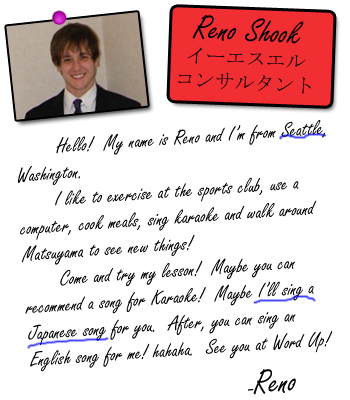 Reno Shook
イーエスエル
コンサルタント
Hello! My name is Reno and I'm from Seattle,
Washington.
I like to exercise at the sports club, use a
computer, cook meals, sing karaoke and walk around
Matsuyama to see new things!
Come and try my lesson! Maybe you can
recommend a song for Karaoke! Maybe I'll sing a
Japanese song for you. After, you can sing an
English song for me! hahaha. See you at Word Up!
-Reno